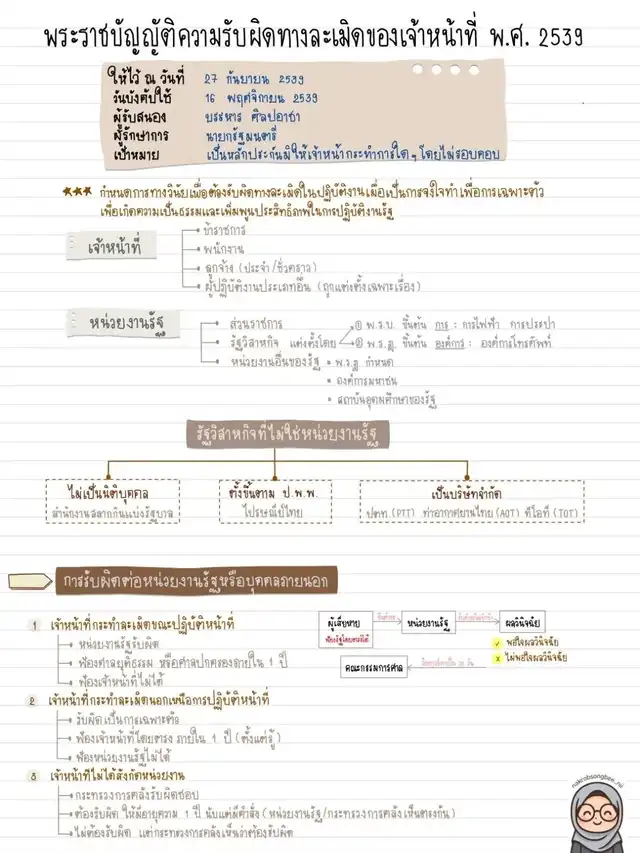 พระราชบัญญัติความรับผิดทางละเมิดของเจ้าหน้าที่ พ.ศ. 2539
ให้ไว้ ณ วันที่ 27 กันยายน 2539
วันบังคับใช้ 16 พฤศจิกายน 2539
ผู้รับสนอง บรรหาร ศิลปอาชา
ผู้รักษาการ นายกรัฐมนตรี
เป้าหมาย เป็นหลักประกันมิให้เจ้าหน้ากระทำการใด ๆ โดยไม่รอบคอบ
★★★ กำหนดการทางวินัยเพื่อต้องรับผิดทางละเมิดในปฏิบัติงานเมื่อเป็นการจงใจทำ เพื่อการเฉพาะตัว
เพื่อเกิดความเป็นธรรมและเพิ่มพูนประสิทธิภาพในการปฏิบัติงานรัฐ
เจ้าหน้าที่
ข้าราชการ
พนักงาน
ลูกจ้าง (ประจำ/ชั่วคราว)
ผู้ปฏิบัติงานประเภทอื่น (ถูกแต่งตั้งเฉพาะเรื่อง)
หน่วยงานรัฐ
ส่วนราชการ
รัฐวิสาหกิจ แต่งตั้งโดย
① พ.ร.บ. ขึ้นต้น การ : การไฟฟ้า การประปา
② พ.ร.ฎ. ขึ้นต้น องค์การ : องค์การโทรศัพท์
หน่วยงานอื่นของรัฐ • พ.ร.ฎ กำหนด
• องค์การมหาชน
• สถาบันอุดมศึกษาของรัฐ
รัฐวิสาหกิจที่ไม่ใช่หน่วยงานรัฐ
ไม่เป็นนิติบุคคล
สำนักงานสลากกินแบ่งรัฐบาล
ตั้งขึ้นตาม ป.พ.พ.
ไปรษณีย์ไทย
เป็นบริษัทจำกัด
ปตท.(PTT) ท่าอากาศยานไทย(AOT) ทีโอที(TOT)
การรับผิดต่อหน่วยงานรัฐหรือบุคคลภายนอก
1 เจ้าหน้าที่กระทำละเมิดขณะปฏิบัติหน้าที่
หน่วยงานรัฐรับผิด
ฟ้องศาลยุติธรรม หรือศาลปกครองภายใน 1 ปี
ฟ้องเจ้าหน้าที่ไม่ได้
ผู้เสียหาย
ฟ้องรัฐโดยตรงมิได้
หน่วยงานรัฐ
ผลวินิจฉัย
✓ พอใจผลวินิจฉัย
x ไม่พอใจผลวินิจฉัย
คณะกรรมการศาล
2 เจ้าหน้าที่กระทำละเมิดนอกเหนือการปฏิบัติหน้าที่
รับผิดเป็นการเฉพาะตัว
ฟ้องเจ้าหน้าที่โดยตรง ภายใน 1 ปี (ตั้งแต่รู้)
ฟ้องหน่วยงานรัฐไม่ได้
3 เจ้าหน้าที่ไม่ได้สังกัดหน่วยงาน
กระทรวงการคลังรับผิดชอบ
ต้องรับผิด ให้มีอายุความ 1 ปี นับแต่มีคำสั่ง (หน่วยงานรัฐ/กระทรวงการคลังเห็นตรงกัน)
ไม่ต้องรับผิด แต่กระทรวงการคลังเห็นว่าต้องรับผิด